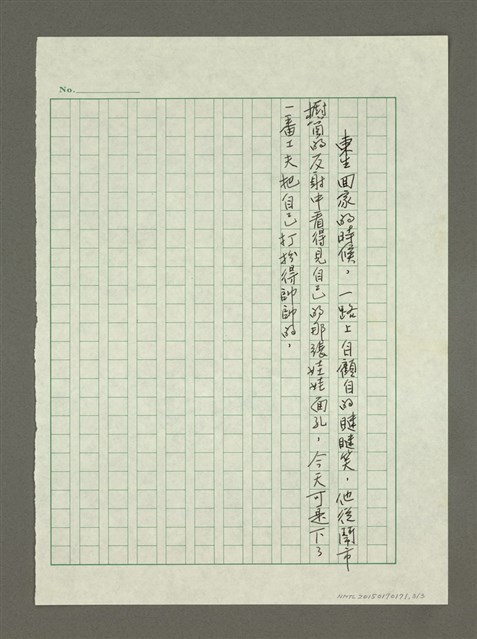 No.
東生回家的時候，一路上自顧自的瞇瞇笑，他從鬧市
櫥窗的反射中看得見自己的那張娃娃面孔，今天可是下了
一番工夫把自己打扮得帥帥的，